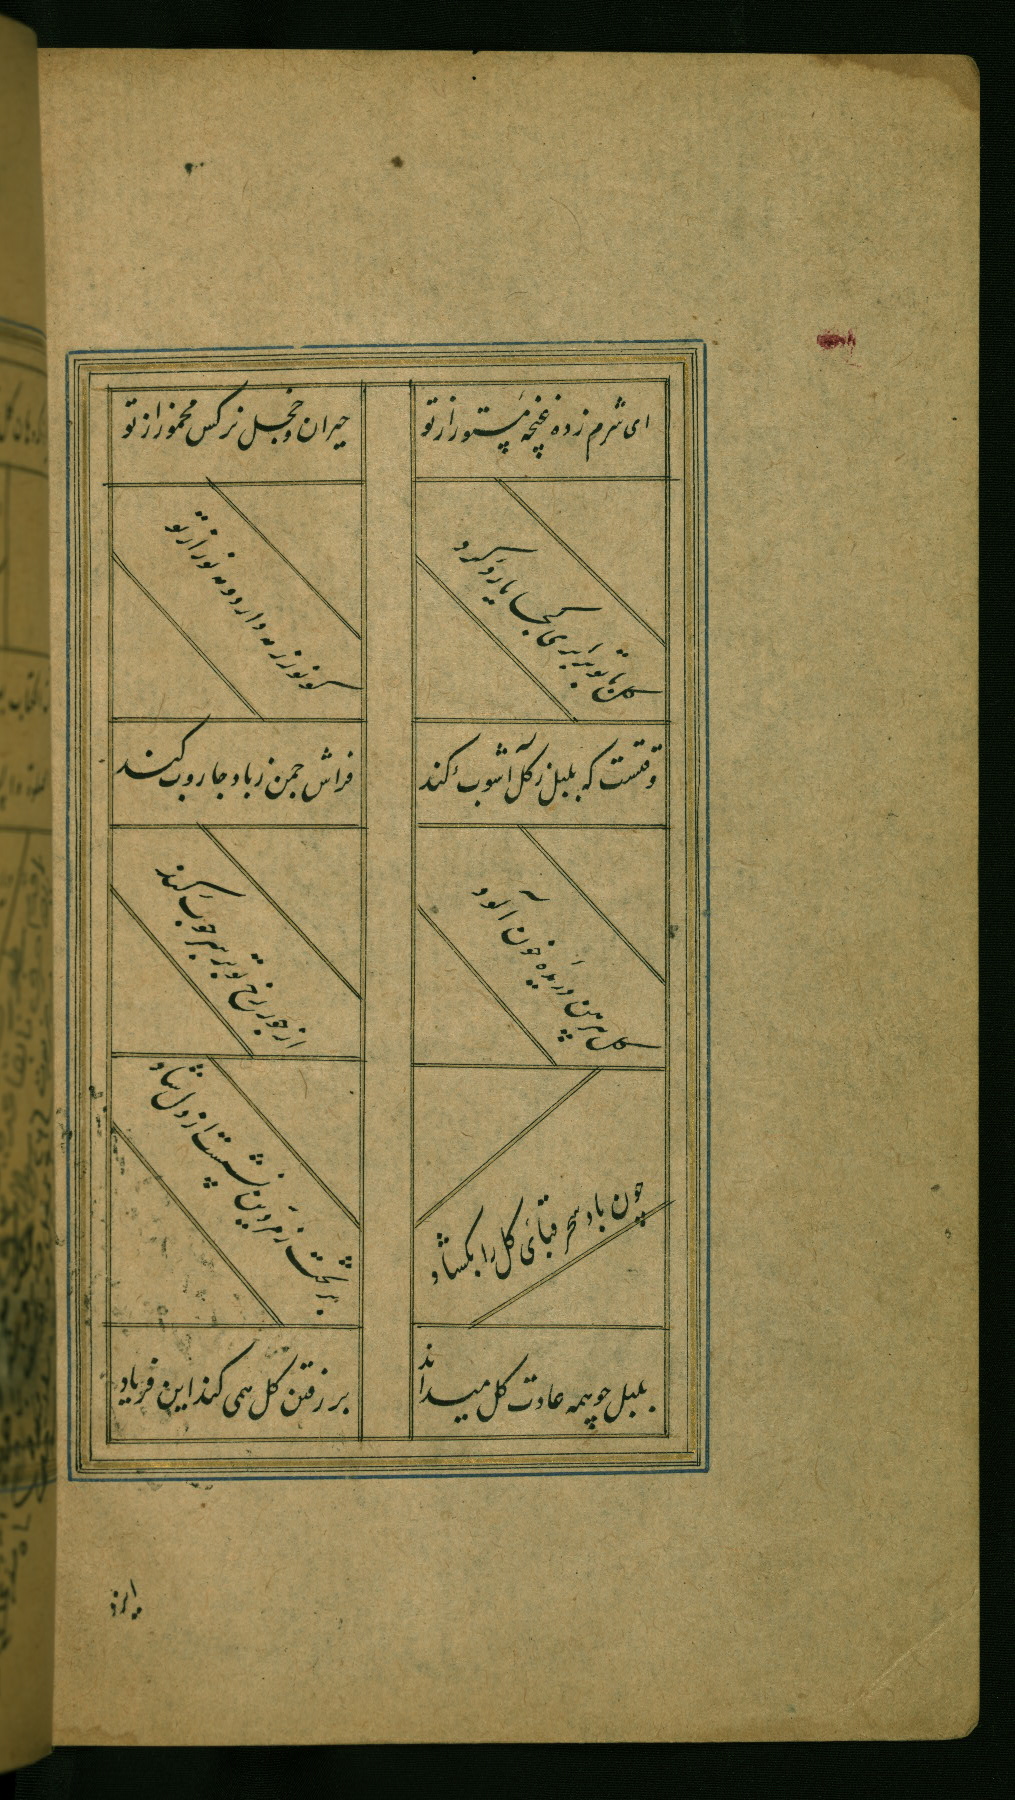 ای شرم زده غنچه مستور از تو
حیران و خجل نرکس مخمور از تو
کل با تو برابری کجا یارد کرد
کو نور ز مه دارد و مه نور از تو
وقتست که بلبل ز کل آشوب کند
فراش چمن ز باد جاروب کند
کل پیرهن دریده خون آلود
از جور رخ تو بر سر چوب کند
چون باد سحر قبائ کل را بکشاد
نشست از دل شاد
بلبل چو همه عادت کل میداند
بر رفتن کل همی کند این فریاد
ایزد